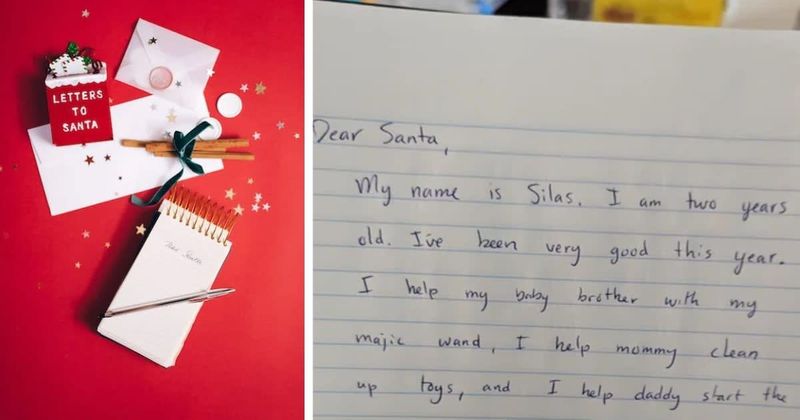 LETTERS
TO
SANTA
Dear Santa
Dear Santa,
My name is Silas. I am two years
old. I've been very good this year.
I help my baby brother with my
majic wand, I help mommy clean
up toys, and I help daddy start the